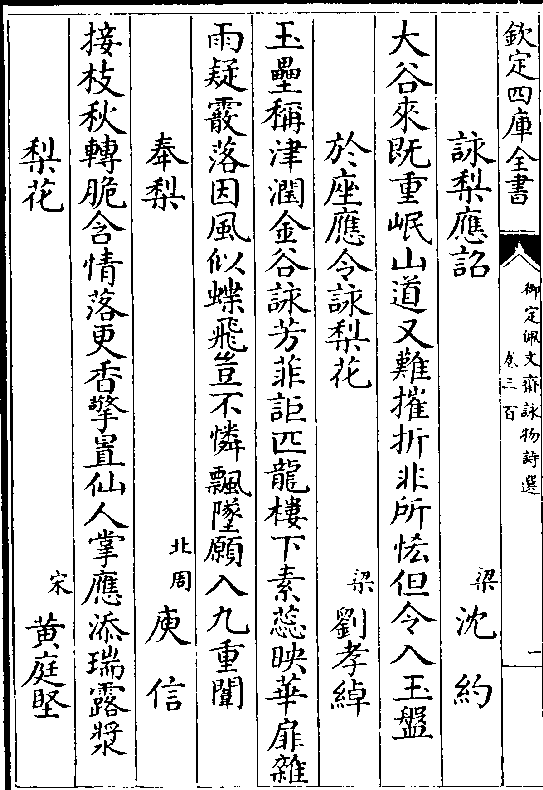 欽定四庫全書
御定佩文齋詠物詩選
卷三百
一
詠梨應詔 梁 沈約
大谷來既重岷山道又難摧折非所恡但令入玉盤
於座應令詠梨花 梁 劉孝綽
玉壘稱津潤金谷詠芳菲詎匹龍樓下素蕊映華扉雜
雨疑霰落因風似蝶飛豈不憐飄墜願入九重闈
奉梨 北周 庾信
接枝秋轉脆含情落更香擎置仙人掌應添瑞露漿
梨花 宋 黃庭堅